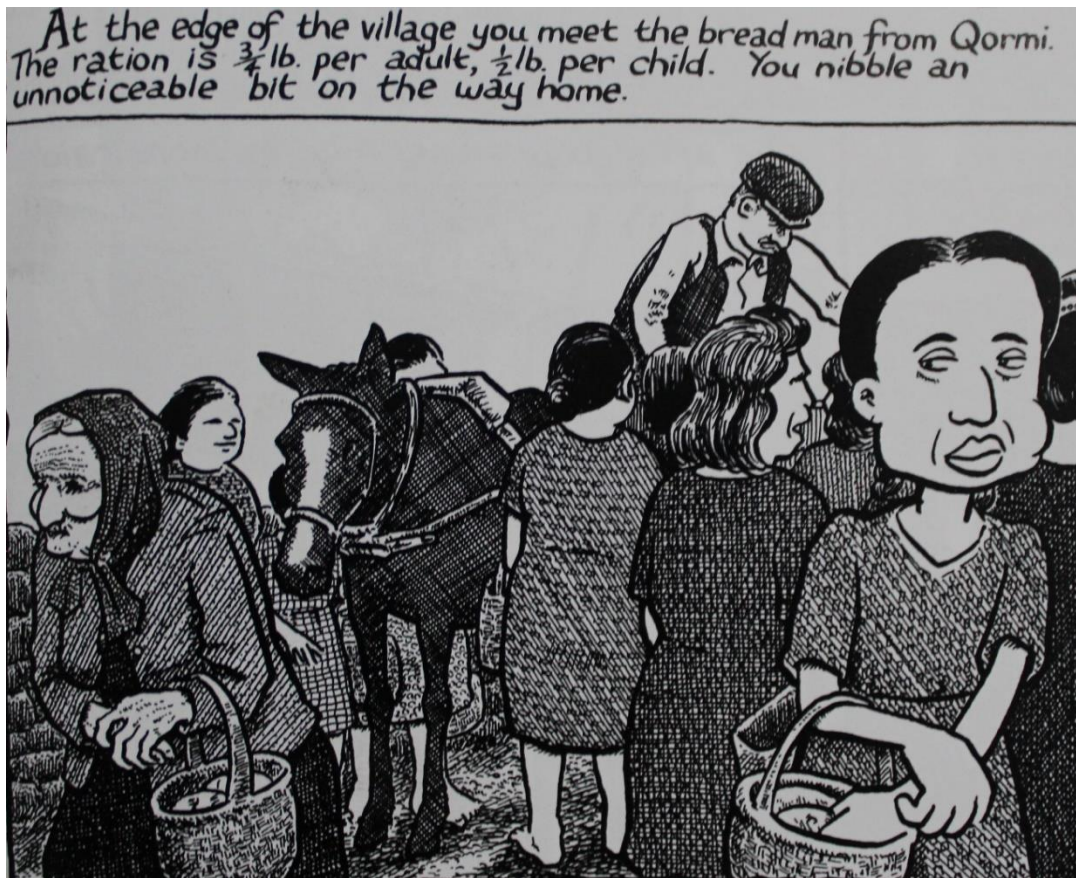 At the edge of the village you meet the bread man from Qormi.
The ration is ¾ lb. per adult, ½ lb. per child. You nibble an
unnoticeable bit on the way home.